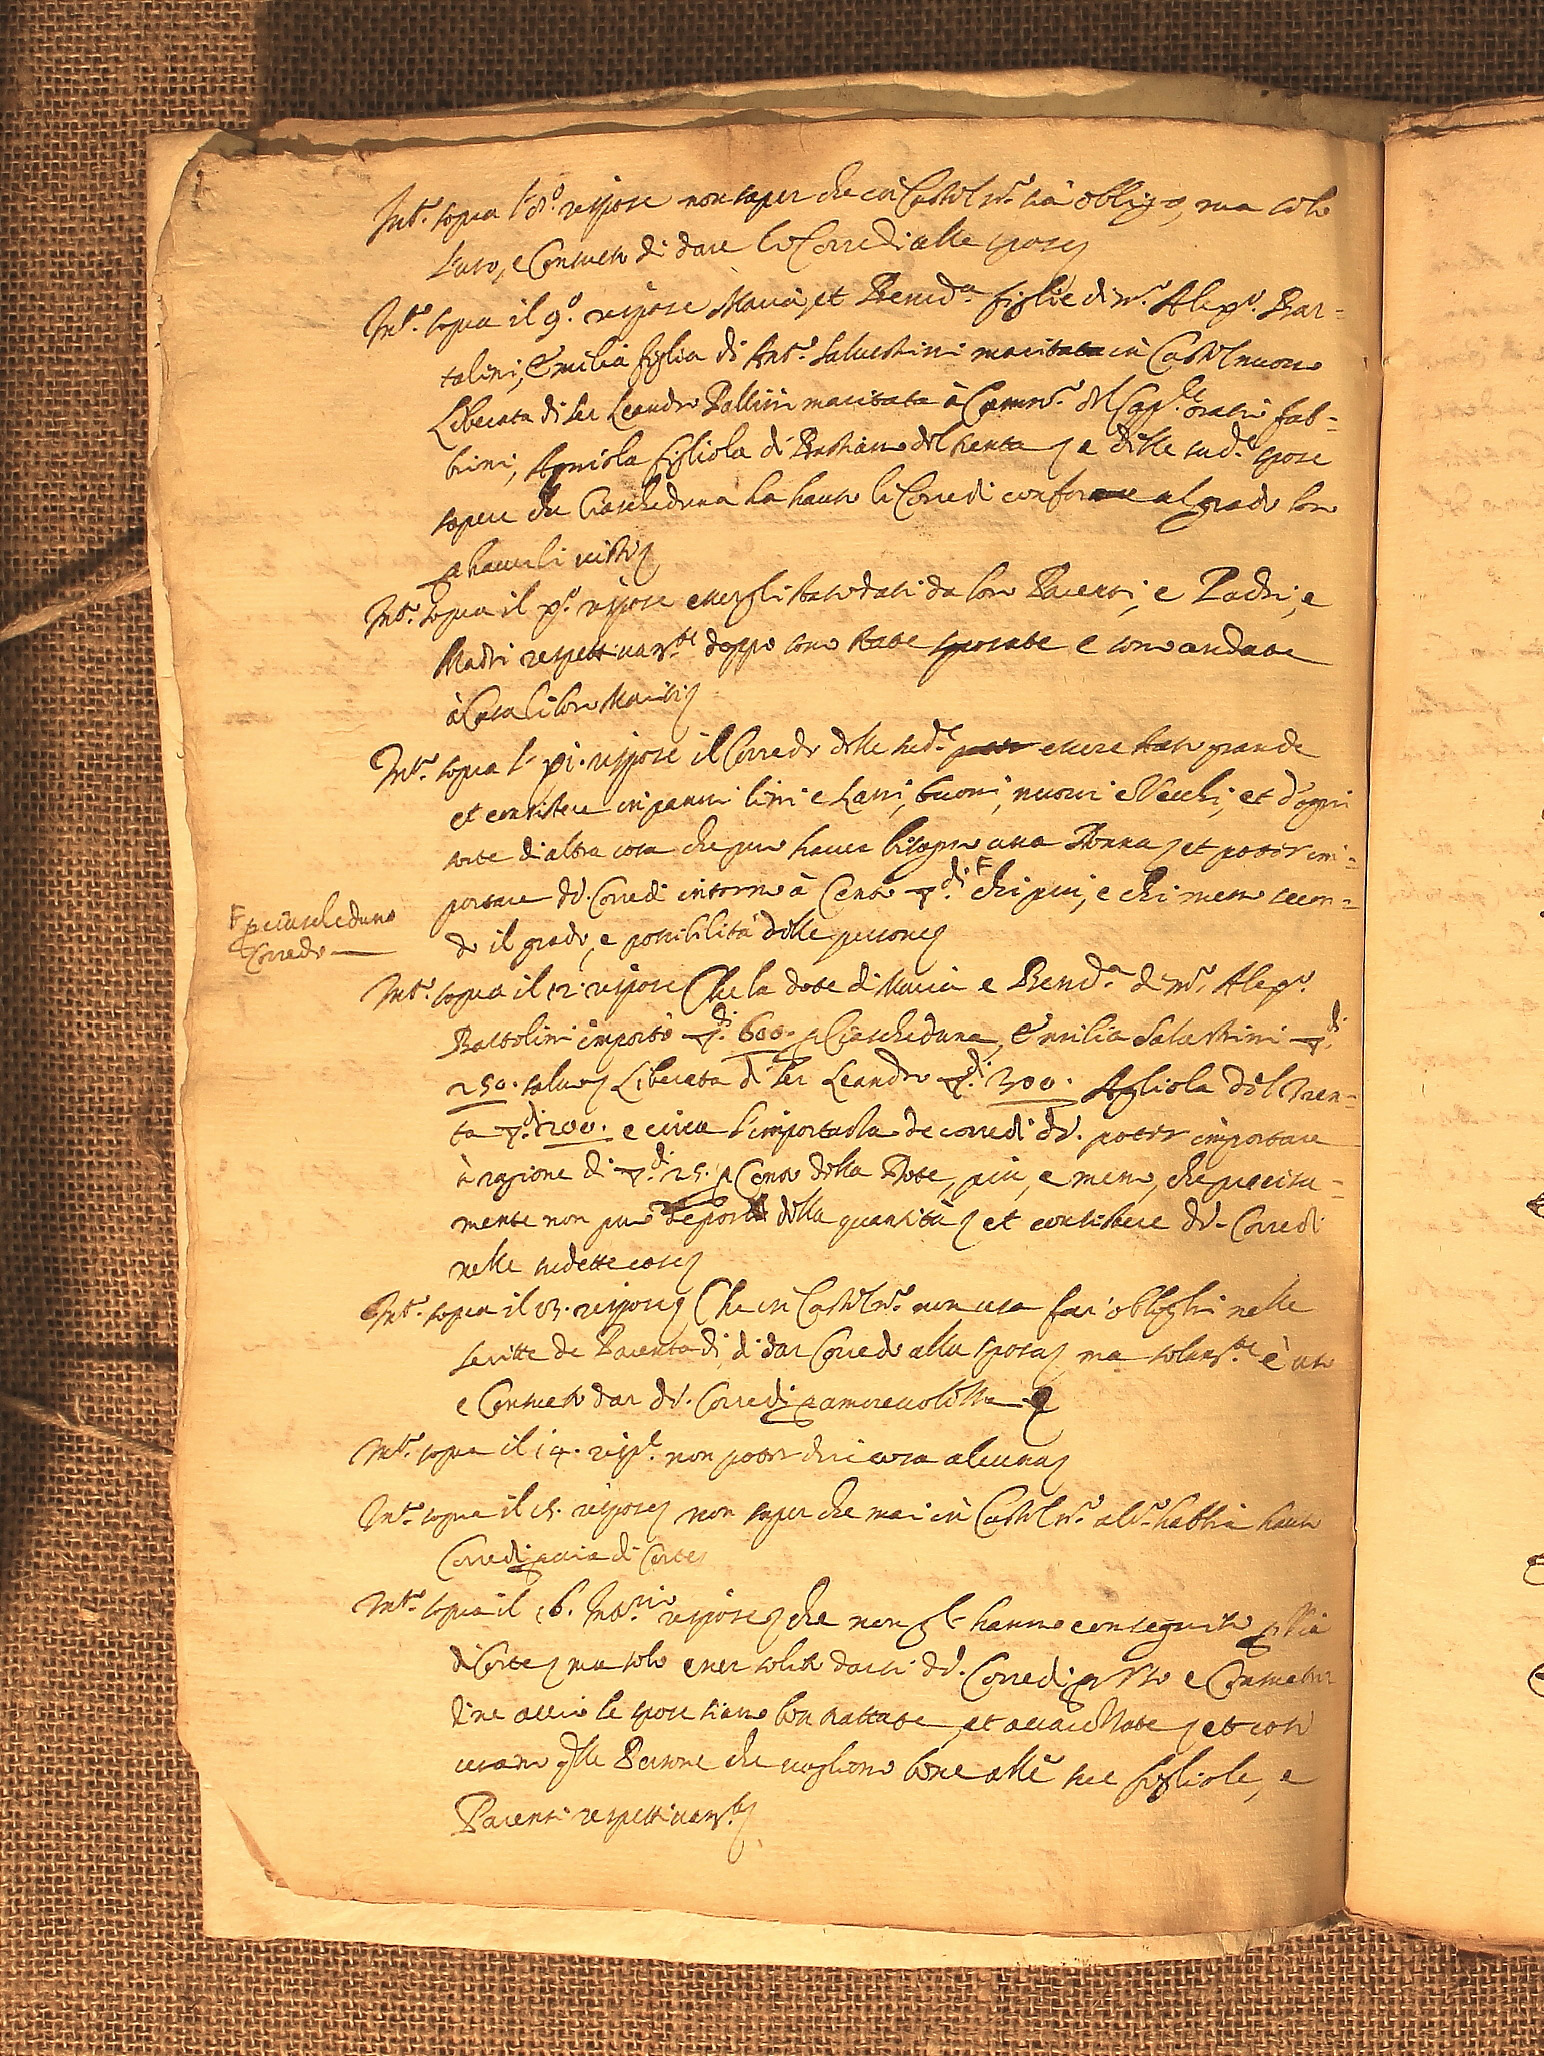 Int.o sopra l'8.o rispose non saper che in Castel n.o sia obbligo, ma solo
l'uso, e Consueto di dare li Corredi alle spose
Int.o sopra il 9.o rispose Maria, et Bened.a figlie di m.r Aless.o Bar=
talini, Emilia figlia di Ant.o Salvestrini maritata in Castelnuovo
Liberata di ser Leandro Pallini maritata à del Cap.
brini, figliola di Bastiano del Trenta e delle sud.e spose
sapere che Ciascheduna ha hauto li Corredi conforme al grado loro
p hauerli uisti
Int.o sopra il X.o rispose essergli stato dati da loro Parenti, e Padri, e
Madri respettiuam.te doppo sono state sposate e sono andate
à Casa li loro Mariti
Int.o sopra l' XI. rispose il Corredo delle sud.e essere stato grande
et consistere in panni lini e lani, buoni, nuoui e Vecchi, et d'ogni
sorte di altra cosa che puo hauer bisogno una Donna et poter im=
portare dd. Corredi intorno à Cento di F chi piu, e chi meno secon=
do il grado, e possibilità delle persone
F p ciascheduno
Corredo
Int.o sopra il 12. rispose Che la dote di Maria e Bened.a di m.r Aless.o
Bartolini importò di 600. p Ciascheduna, Emilia Salvestrini di
250. saluo Liberata di ser Leandro di 300. del Tren=
ta di 200. e circa l'importanza de corredi dd. poter importare
à ragione di di 25. p Cento della Dote, più, e meno, che precisa=
mente non può deporre della quantità et consistere dd. Corredi
nelle sudette cose
Int.o sopra il 13. rispose Che in Castel n.o non usa far' obblighi nelle
scritte de Parentadi di dar Corredo alla sposa ma solam.te è uso
e Consueto dar dd. Corredi p amoreuolezza
Int.o sopra il 14. risp.e non poter dirci cosa alcuna
Int.o sopra il 15. rispose non saper che mai in Castel n.o alc.o habbia hauto
Corredi p uia di Corte
Int.o sopra il 16. Int.rio rispose che non gl' hanno conseguito p Via
di Corte ma solo esser solito darsi dd. Corredi p Uso e Consuetu
dine acciò le spose siano ben trattate, et accarezzate et così
usano q.lle Persone che uogliono bene alle sue figliole, e
Parenti respettiuam.te